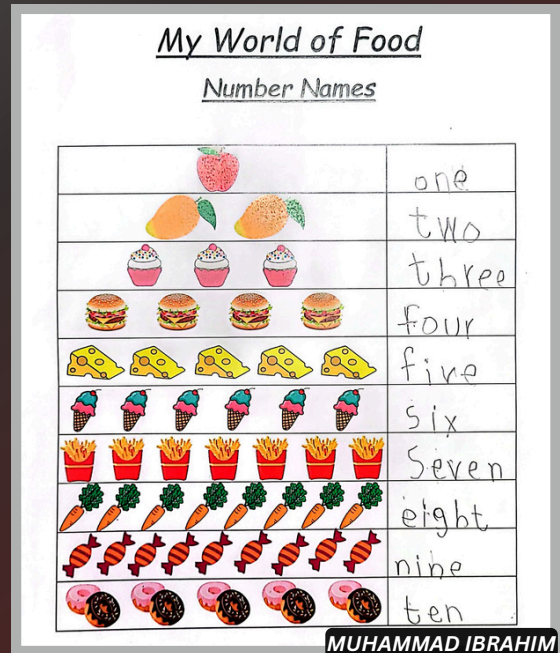 My World of Food
Number Names
one
two
three
four
five
six
Seven
eight
nine
ten
MUHAMMAD IBRAHIM